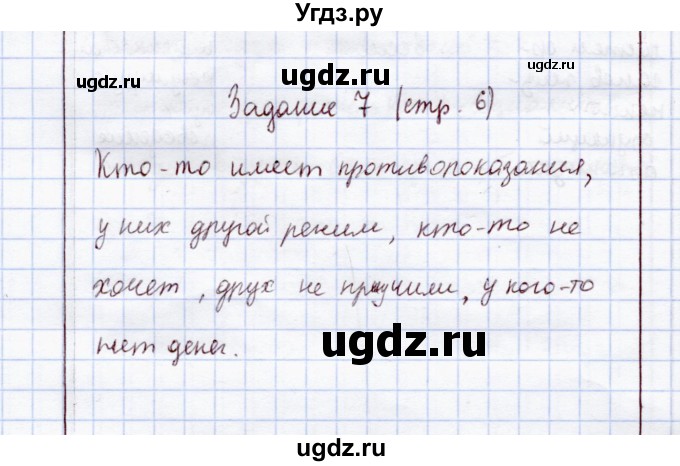 Угдз.ру
ugdz.ru
ugdz.ru
ugdz.ru
Задание 7 (стр. 6)
Кто-то имеет противопоказания,
у них другой режим, кто-то не
хочет, друх не приучили, у кого-то
нет денег.
ugdz.ru
ugdz.ru